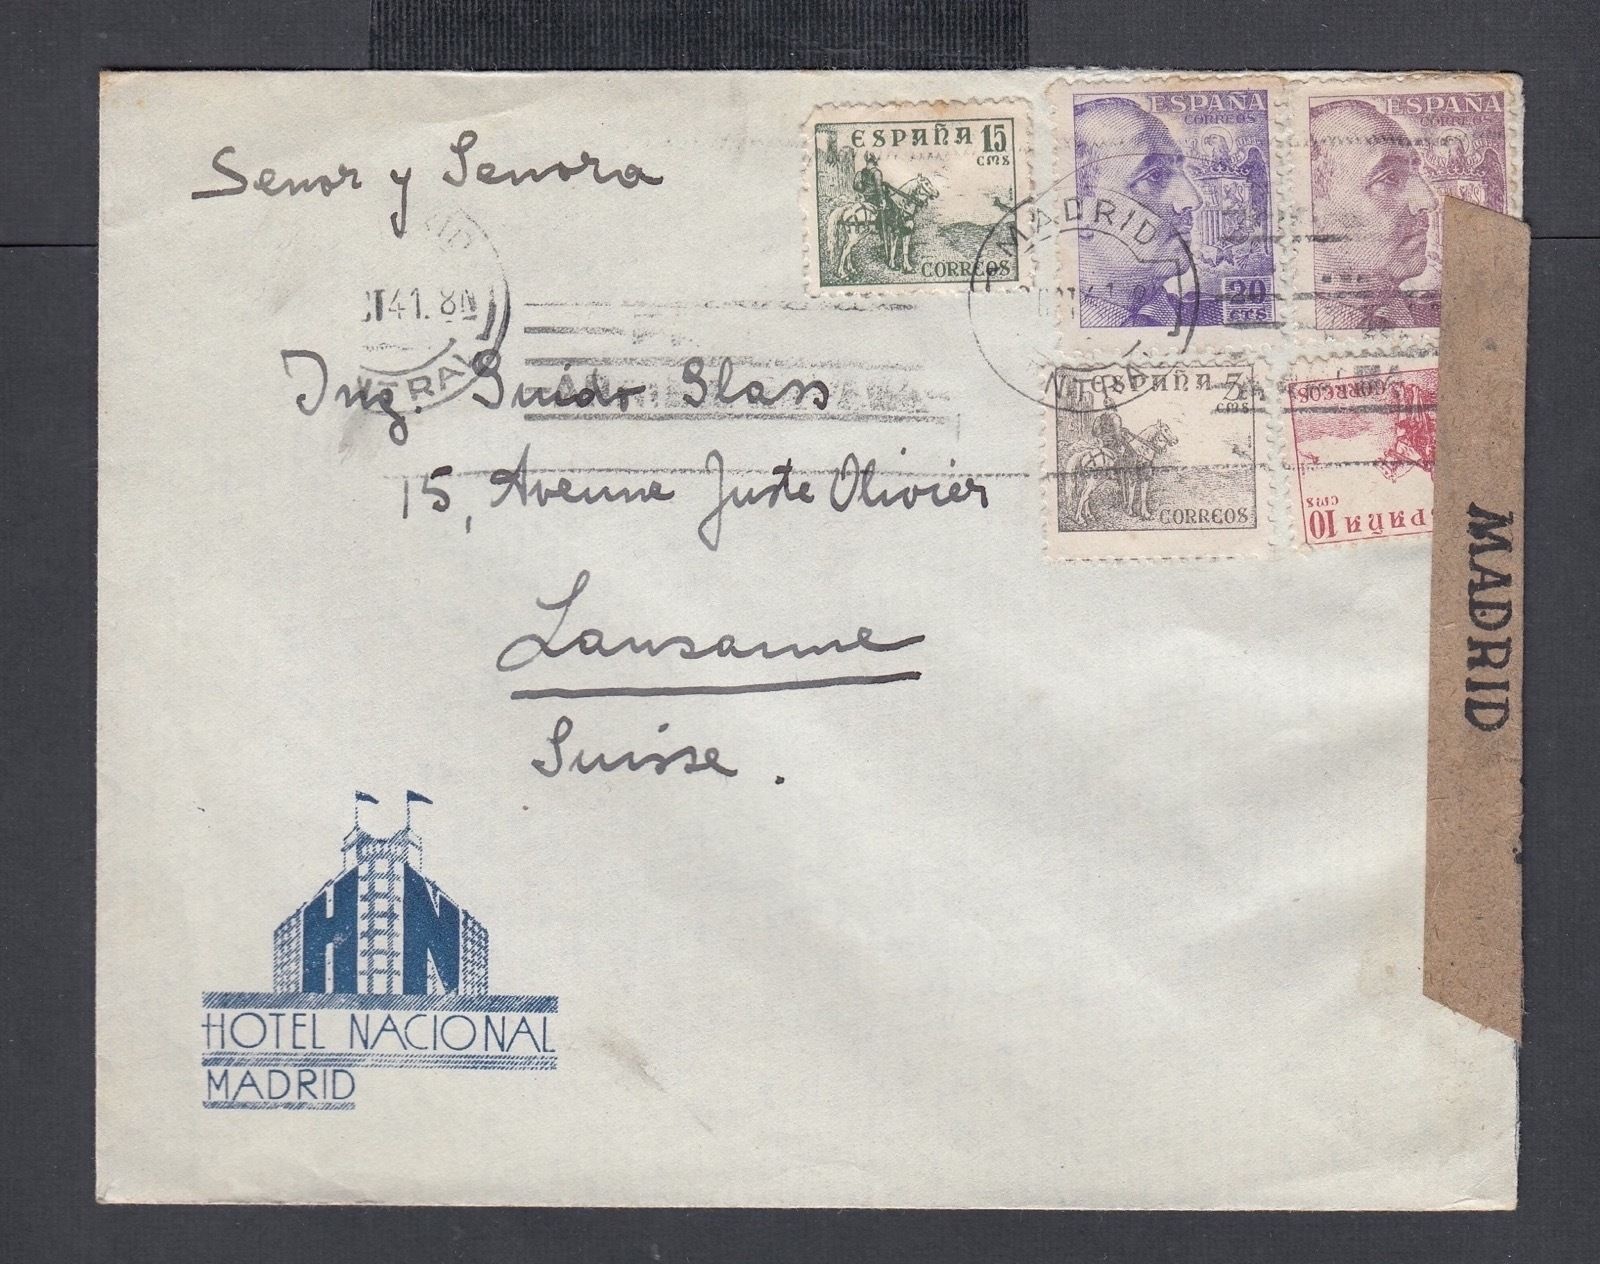 Senor y Senora
Ing. Guido Glass
15, Avenue Juste Olivier
Lausanne
Suisse.
ESPAÑA 15
cms
CORREOS
ESPAÑA
CORREOS
20
CTS
ESPAÑA
CORREOS
MADRID
ESPAÑA
cms
CORREOS
CORREOS
ESPAÑA 10
cms
T 41. 8N
MADRID
HN
HOTEL NACIONAL
MADRID